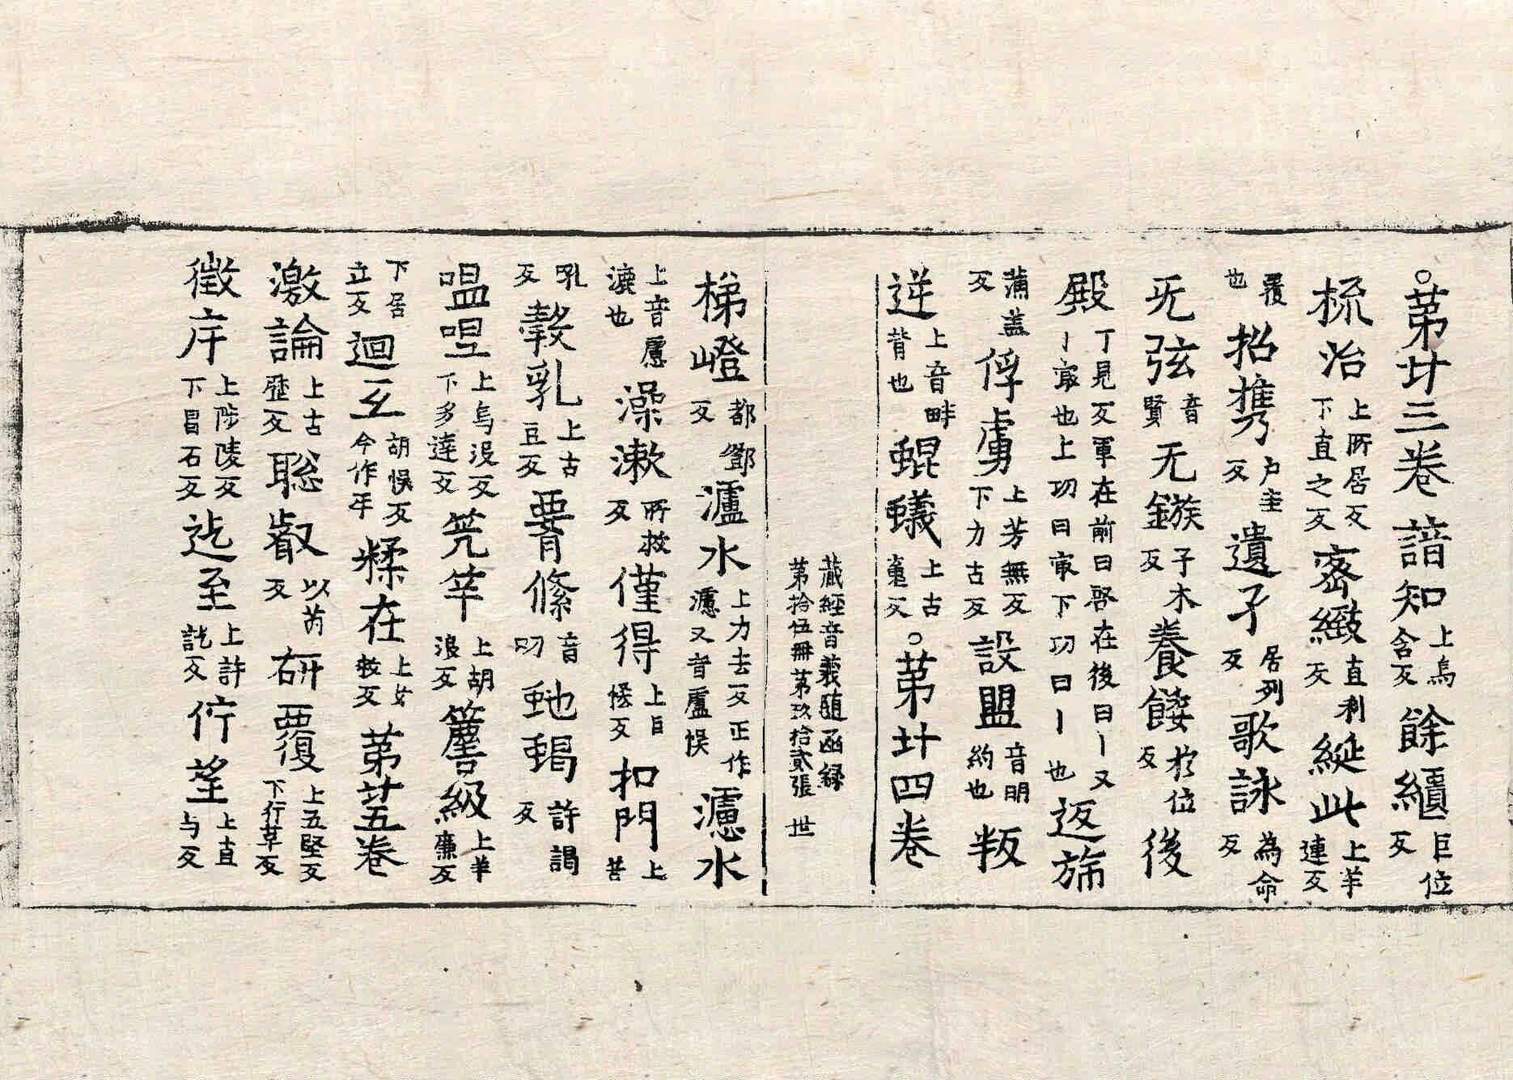 ○第廿三卷 諳知上烏含反 餘繢巨位反
梳治上所居反下直之反 密緻直利反 綖此上羊連反
覆也 招携户圭反 遺孑居列反 歌詠為命反
旡弦音賢 无鏃子木反 養餧於位反 後
殿丁見反軍在前曰啓在後曰丨又丨㝡也上功曰㝡下功曰丨也 返旆
蒲盖反 俘虜上芳無反下力古反 設盟音明約也 叛
逆上音畔背也 蜫蟻上古䰟反 ○第廿四卷
藏經音義随函録
第拾伍冊第玖拾貳張 世
梯嶝都鄧反 瀘水上力去反正作濾又音盧悮 濾水
上音慮漉也 澡漱所救反 僅得上巨悋反 扣門上苦
吼反 㝅乳上古豆反 䏿絛音叨 虵蝎許謁反
嗢呾上烏没反下多達反 筦竿上胡浪反 簷級上羊廉反
下居立反 迴互胡悮反今作㸦 糅在上女救反 第廿五卷
激論上古歷反 聡叡以芮反 研覆上五堅反下行革反
徵斥上陟陵反下昌石反 迄至上許訖反 佇望上直与反